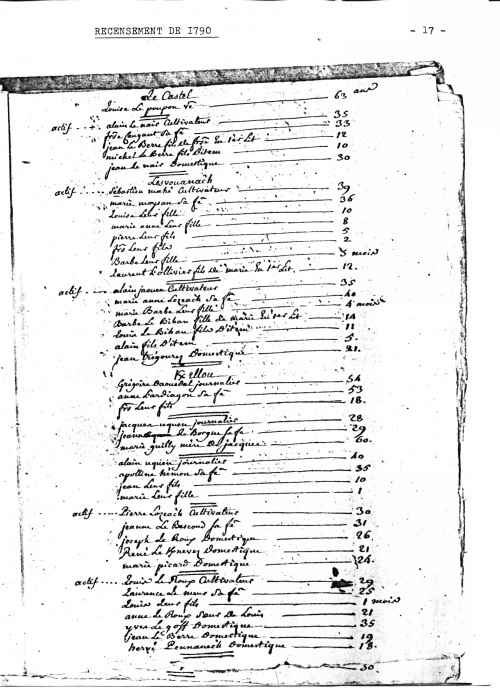 RECENSEMENT DE 1790 - 17 -
Le Castel
Louise Le poupon ve 63 ans
actif alain Le naïs Cultivateur 35
fse Caugant Sa fe 33
jean Le Berre fils de fse En 1er Lit 12
michel Le Berre fils D'item 10
jean Le naïs Domestique 30
Lesvouanach
actif Sébastien mahé Cultivateur 39
marie moysan Sa fe 36
Louise Leur fille 10
marie anne Leur fille 8
pierre Leur fils 5
fs Leur fils 2
Barbe Leur fille 5 mois
Laurent L'ollivier fils de marie En 1er Lit 12
actif alain jaouen Cultivateur 35
marie anne Lozeach Sa fe 40
marie Barbe Leur fille 4 mois
Barbe Le Bihan fille de marie En 1er Lit 14
Louis Le Bihan fils D'item 11
alain fils D'item 5
jean trégourez Domestique 21
Kerllou
Grégoire Daouedal journalier 54
anne Lardiagon Sa fe 53
fs Leur fils 18
jacques uguen journalier 28
jeanne Le Borgne Sa fe 29
marie guilly mère de jacques 60
alain uguen journalier 40
apolline hémon Sa fe 35
jean Leur fils 10
marie Leur fille 1
actif Pierre Lozeach Cultivateur 30
jeanne Le Bescond Sa fe 31
joseph Le Roux Domestique 26
René Le Domestique 21
marie picard Domestique 24
actif Louis Le Roux Cultivateur 29
Laurence Le meur Sa fe 25
Louis Leur fils 1 mois
anne Le Roux Sœur de Louis 21
yves Le goff Domestique 35
jean Le Berre Domestique 19
hervé Pennaneach Domestique 18
50